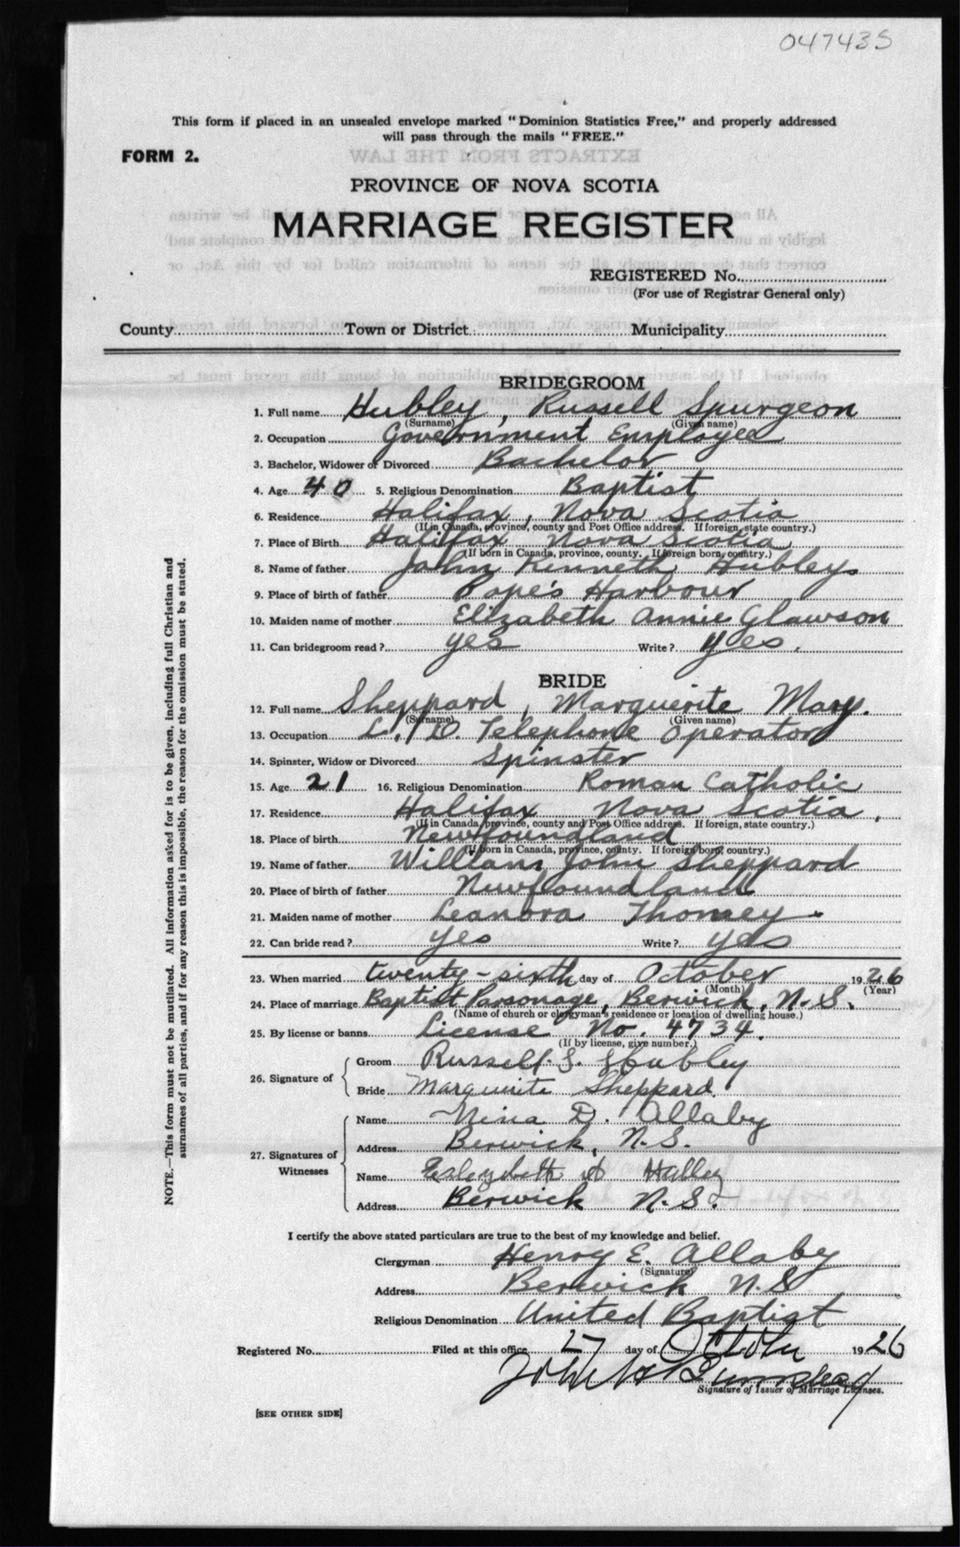 047435
This form if placed in an unsealed envelope marked "Dominion Statistics Free," and properly addressed
will pass through the mails "FREE."
FORM 2.
PROVINCE OF NOVA SCOTIA
MARRIAGE REGISTER
REGISTERED No.
(For use of Registrar General only)
County Town or District Municipality
BRIDEGROOM
1. Full name Hubley, Russell Spurgeon
(Surname) (Given name)
2. Occupation Government Employee
3. Bachelor, Widower or Divorced Bachelor
4. Age 40 5. Religious Denomination Baptist
6. Residence Halifax, Nova Scotia
(If in Canada, province, county and Post Office address. If foreign, state country.)
7. Place of Birth Halifax Nova Scotia
(If born in Canada, province, county. If foreign born, country.)
8. Name of father John Kenneth Hubley
9. Place of birth of father Pope's Harbour
10. Maiden name of mother Elizabeth Annie Glawson
11. Can bridegroom read? yes Write? yes.
BRIDE
12. Full name Sheppard, Marguerite Mary.
(Surname) (Given name)
13. Occupation L. / D. Telephone Operator
14. Spinster, Widow or Divorced Spinster
15. Age 21 16. Religious Denomination Roman Catholic
17. Residence Halifax Nova Scotia.
(If in Canada, province, county and Post Office address. If foreign, state country.)
18. Place of birth Newfoundland
(If born in Canada, province, county. If foreign born, country.)
19. Name of father William John Sheppard
20. Place of birth of father Newfoundland
21. Maiden name of mother Leanora Thomey
22. Can bride read? yes Write? yes
23. When married twenty-sixth day of October 1926
(Month) (Year)
24. Place of marriage Baptist Parsonage, Berwick, N.S.
(Name of church or clergyman's residence or location of dwelling house.)
25. By license or banns License No. 4734.
(If by license, give number.)
26. Signature of
Groom Russell. S. Hubley
Bride Marguerite Sheppard.
27. Signatures of Witnesses
Name Nina D. Allaby
Address Berwick, N.S.
Name A Halley
Address Berwick N.S.
I certify the above stated particulars are true to the best of my knowledge and belief.
Clergyman Henry E. Allaby
(Signature)
Address Berwick N.S
Religious Denomination United Baptist
Registered No. Filed at this office 27 day of October 1926
Signature of Issuer of Marriage Licenses.
[SEE OTHER SIDE]
NOTE.—This form must not be mutilated. All information asked for is to be given, including full Christian and
surnames of all parties, and if for any reason this is impossible, the reason for the omission must be stated.